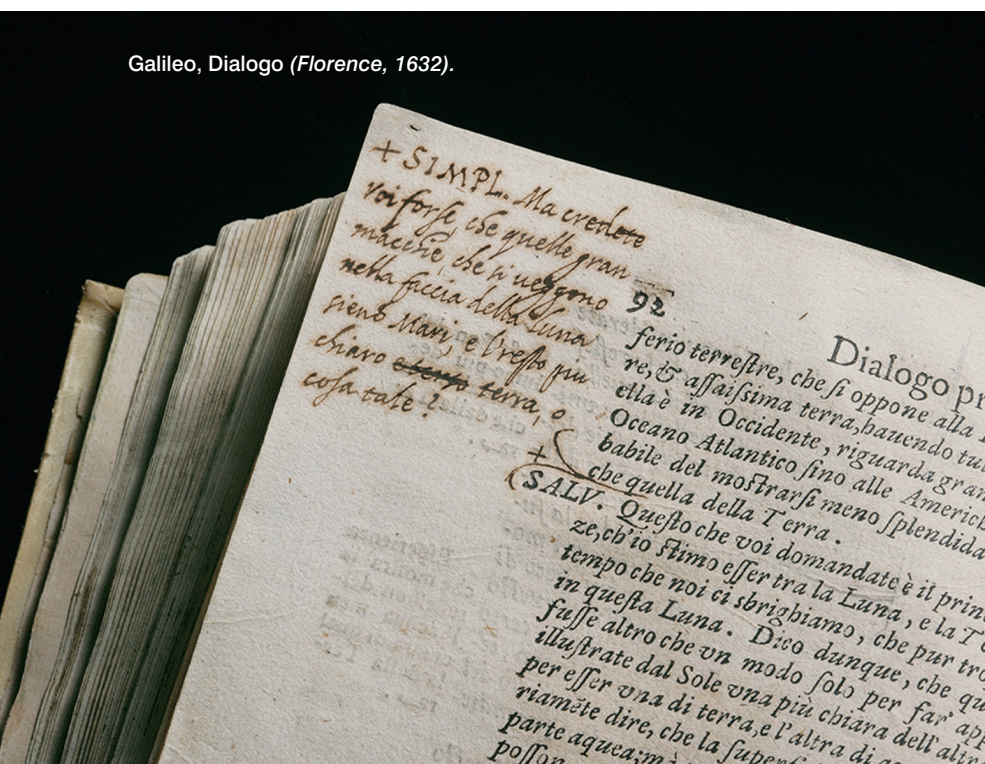 Galileo, Dialogo (Florence, 1632).
+ SIMPL. Ma credete
voi forse, che quelle gran
macchie, che si veggono
nella faccia della Luna
sieno Mari, e l'resto piu
chiaro terra, o
cosa tale?
+
92
Dialogo pr
ſerio terreſtre, che ſi oppone alla
re, & aſſaiſſima terra, hauendo tut
ella è in Occidente, riguarda gran
Oceano Atlantico ſino alle Americh
babile del moſtrarſi meno ſplendida
che quella della Terra.
SALV. Queſto che voi domandate è il prin
ze, ch'io ſtimo eſſer tra la Luna, e la T
tempo che noi ci sbrighiamo, che pur tro
in queſta Luna. Dico dunque, che qu
fuſſe altro che vn modo ſolo per far' app
illuſtrate dal Sole vna più chiara dell'altra
per eſſer vna di terra, e l'altra di
riamẽte dire, che la ſuperf
parte aquea; mà
poſſon